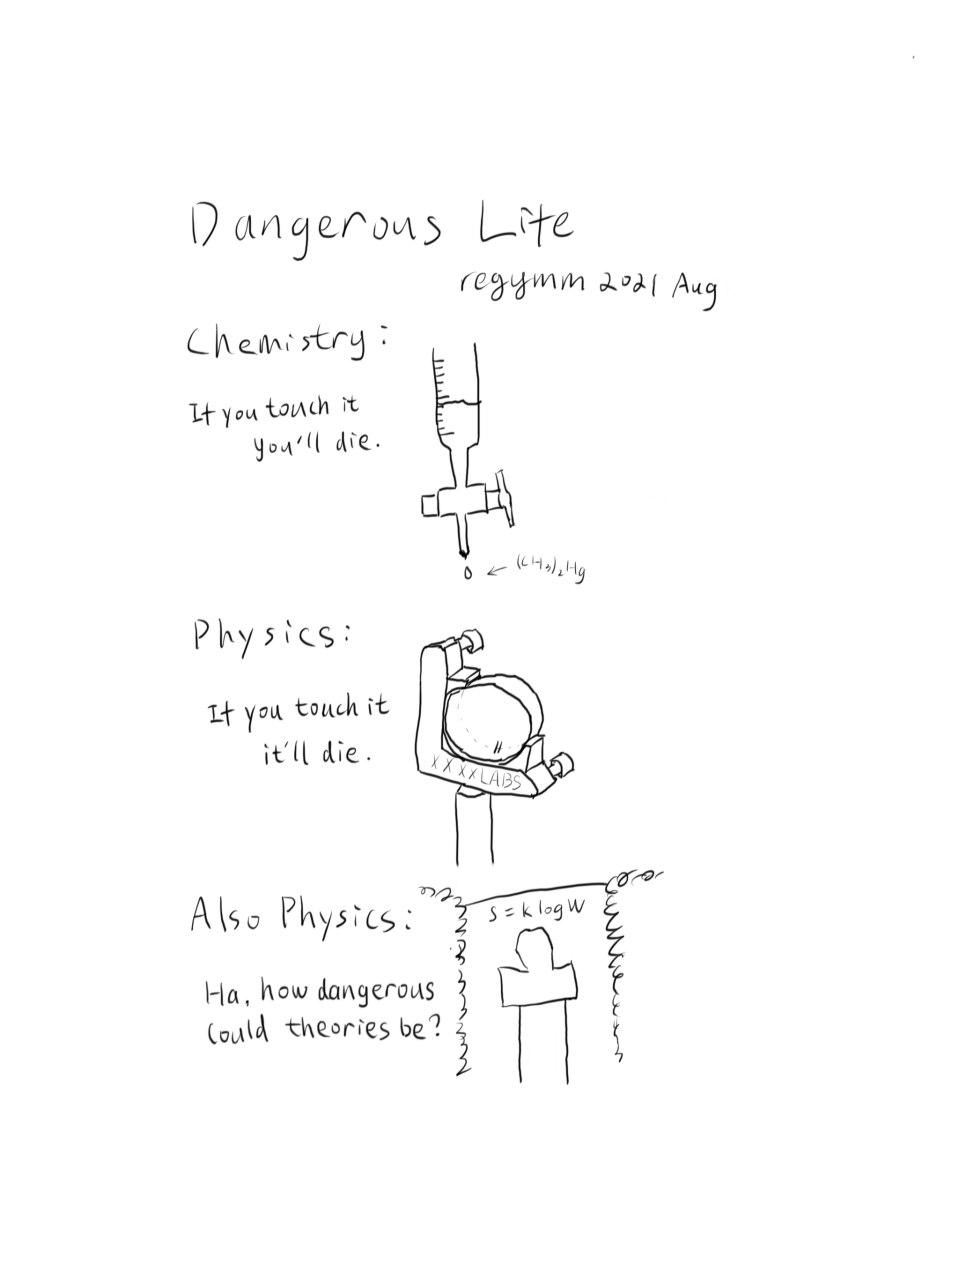 Dangerous Life
regymm 2021 Aug
Chemistry:
If you touch it
you'll die.
(CH3)2Hg
Physics:
If you touch it
it'll die.
XXXXLABS
Also Physics:
S=klogW
Ha, how dangerous
could theories be?